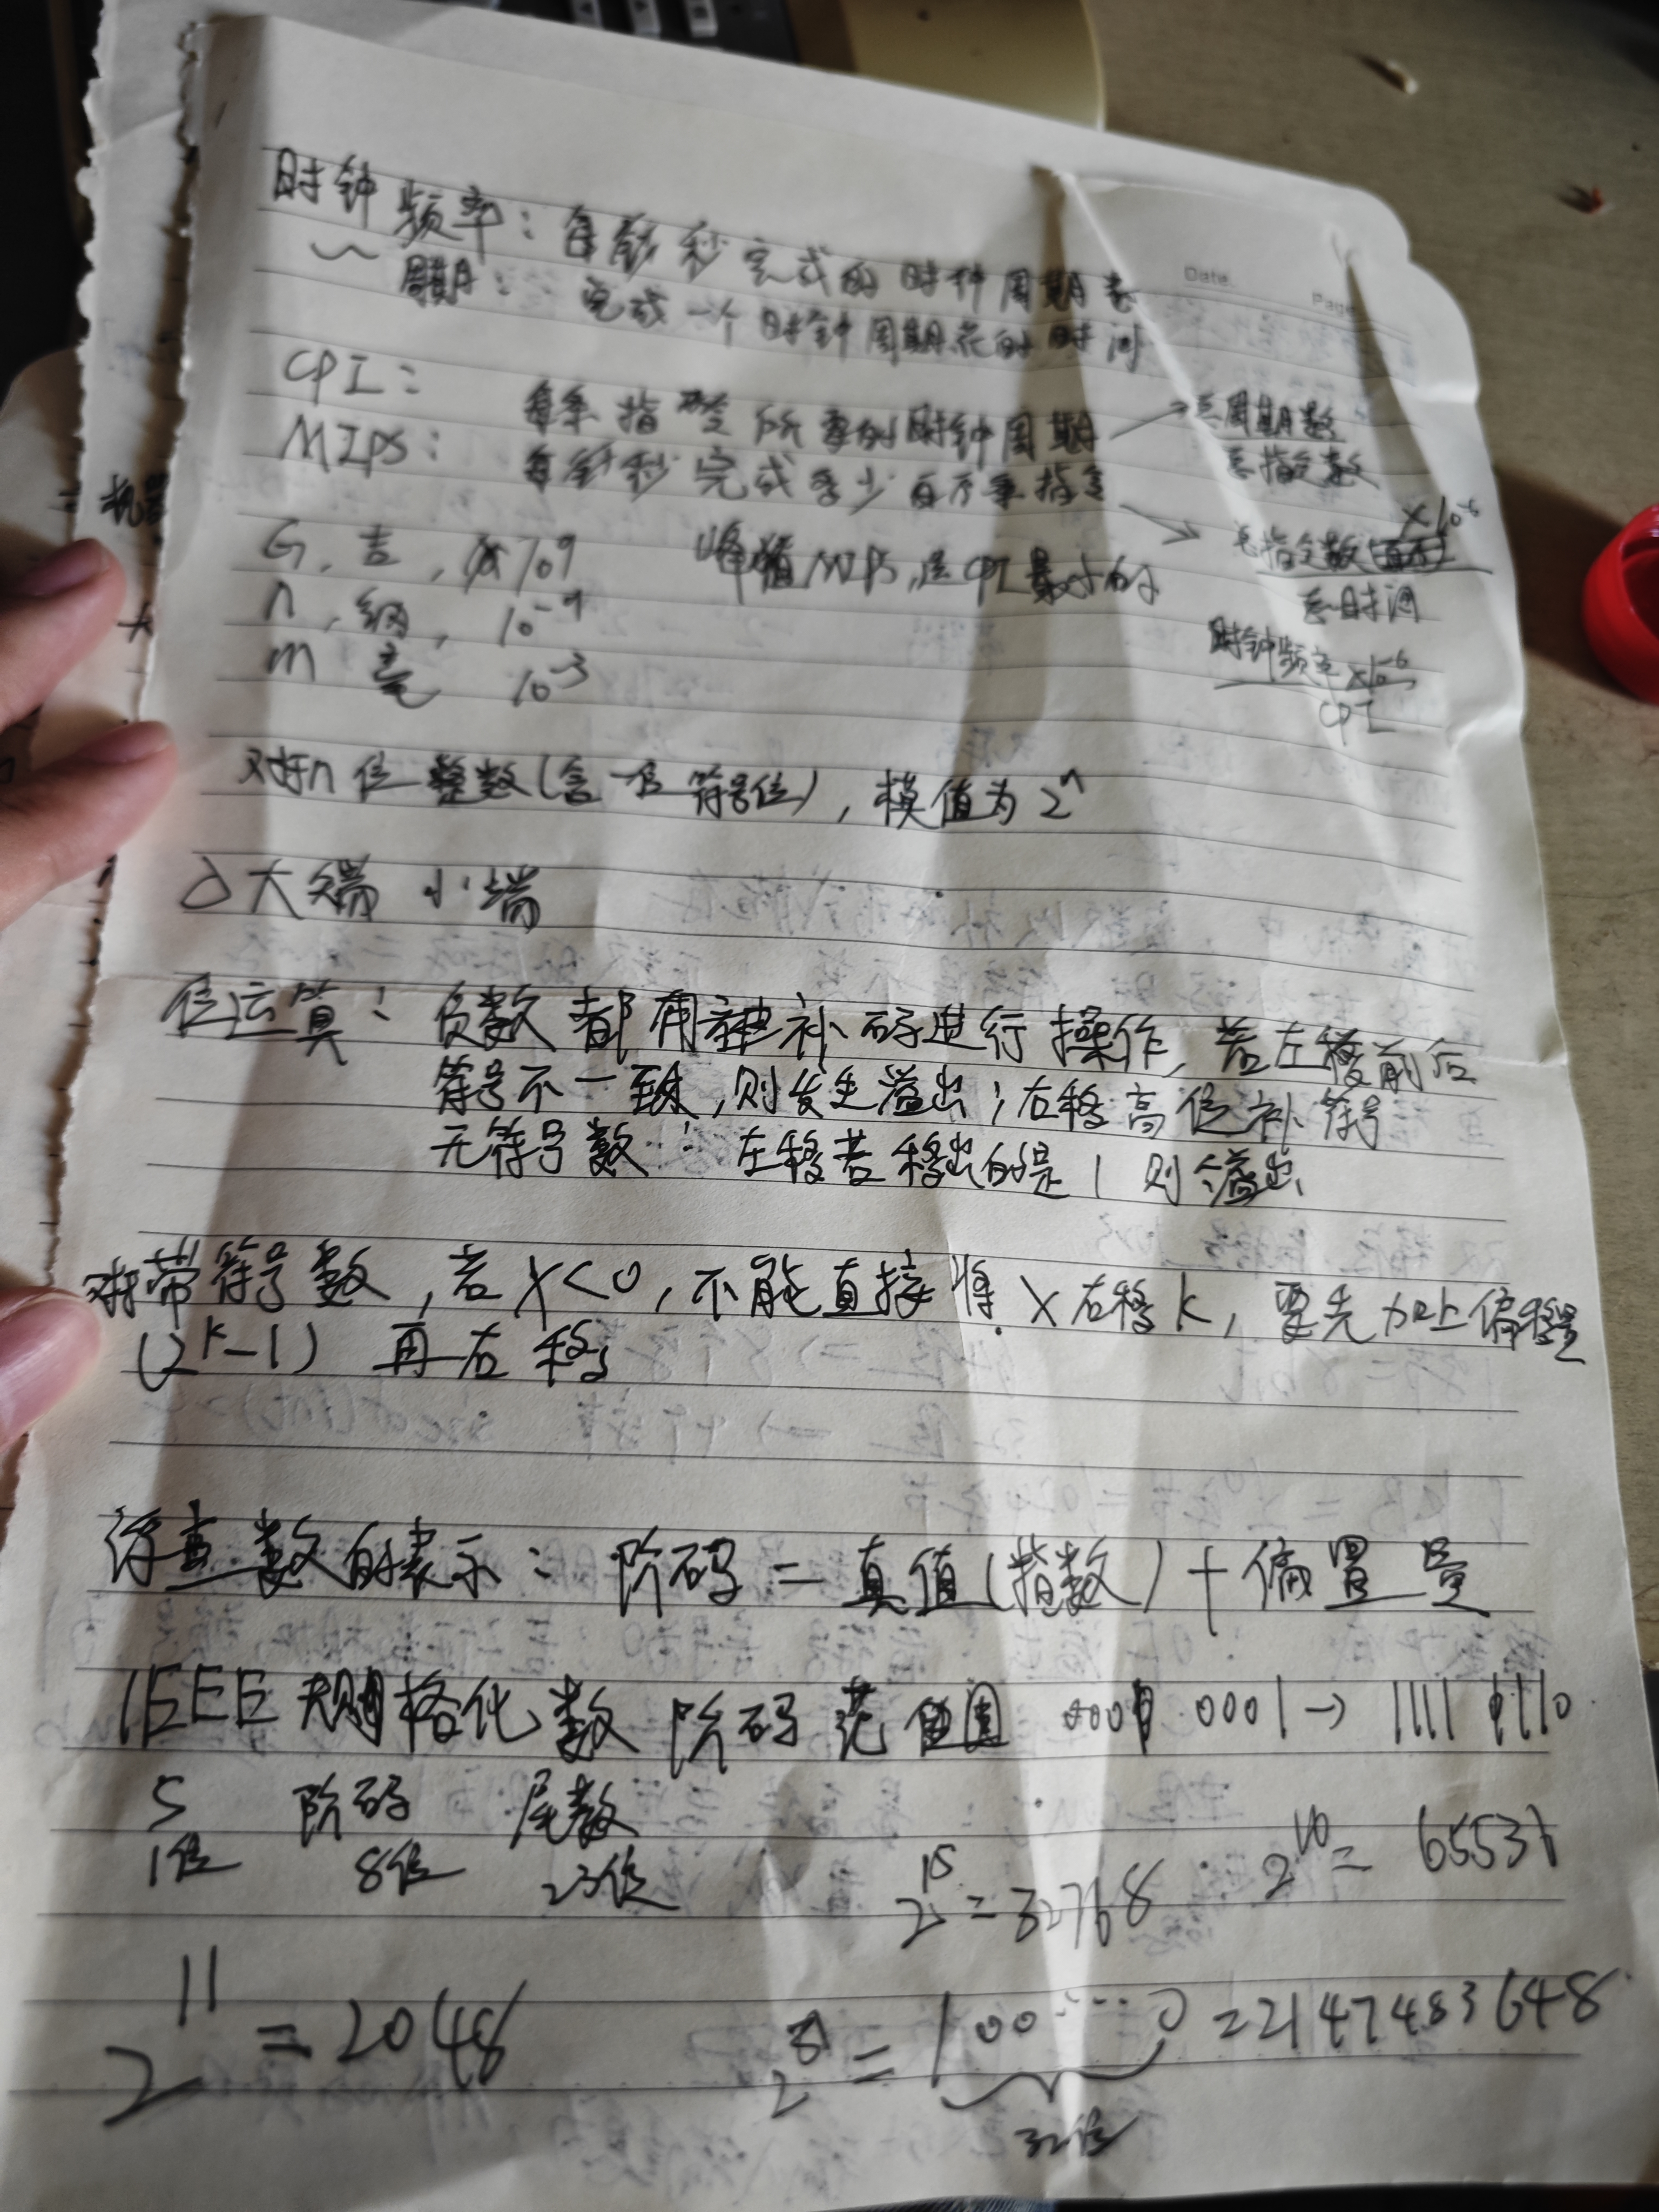 Date.
Page
时钟频率：每秒完成的时钟周期数
～ 周期：完成一个时钟周期花的时间
CPI： 每条指令所需的时钟周期 → 总周期数 / 总指令数
MIPS： 每秒完成多少百万条指令 → 总指令数(百万) ×10⁻⁶ / 总时间
时钟频率×10⁻⁶ / CPI
G，吉，10⁹ 峰值MIPS，选CPI最小的
n，纳，10⁻⁹
m 毫 10⁻³
对于n位整数(含一位符号位)，模值为2ⁿ
大端 小端
位运算：负数都用补码进行操作，若左移前后
符号不一致，则发生溢出；右移高位补符号
无符号数：左移若移出的是1则溢出
对于带符号数，若X<0，不能直接将X右移k，要先加上偏移量
(2ᵏ-1) 再右移
浮点数的表示：阶码=真值(指数)+偏置量
IEEE 规格化数 阶码范围 0000 0001→1111 1110
S 阶码 尾数
1位 8位 23位
2¹⁵=32768 2¹⁶=65536
2¹¹=2048 2³¹=100……0=2147483648
32位
机器